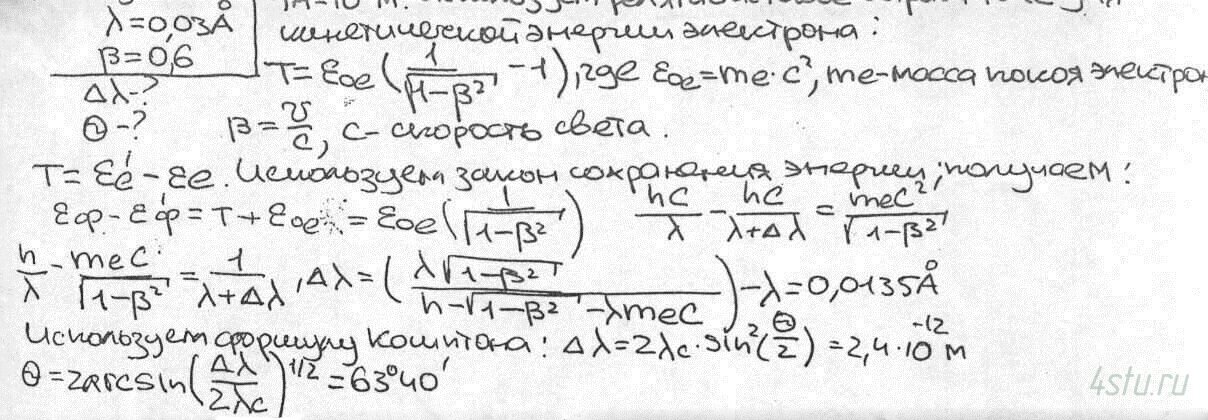 λ=0,03Å
β=0,6
Δλ-?
Θ-?
кинетической энергии электрона:
T=ε₀e(1/√(1-β²) -1), где ε₀e=me·c², me-масса покоя электрон
β=v/c, c-скорость света.
T=εe'-εe. Используем закон сохранения энергии, получаем:
εф-εф'=T+ε₀e=ε₀e(1/√(1-β²)) hc/λ - hc/(λ+Δλ) = mec²/√(1-β²)
h/λ - mec/√(1-β²) = 1/(λ+Δλ), Δλ=(λ√(1-β²)/(h√(1-β²)-λmec))-λ=0,0135Å
Используем формулу Комптона: Δλ=2λc·sin²(Θ/2)=2,4·10⁻¹² м
Θ=2arcsin(Δλ/2λc)^1/2=63°40'
4stu.ru